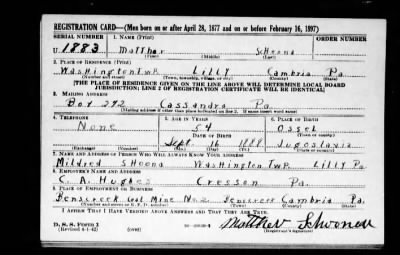 REGISTRATION CARD—(Men born on or after April 28, 1877 and on or before February 16, 1897)
SERIAL NUMBER 1. NAME (Print)
U. 1883 Matthew Scheona
(First) (Middle) (Last)
2. PLACE OF RESIDENCE (Print)
Washington Twp. Lilly Cambria Pa.
(Number and street) (Town, township, village, or city) (County) (State)
[THE PLACE OF RESIDENCE GIVEN ON THE LINE ABOVE WILL DETERMINE LOCAL BOARD
JURISDICTION; LINE 2 OF REGISTRATION CERTIFICATE WILL BE IDENTICAL]
3. MAILING ADDRESS
Box 292 Cassandra Pa.
[Mailing address if other than place indicated on line 2. If same insert word same]
4. TELEPHONE 5. AGE IN YEARS 6. PLACE OF BIRTH
None 54 Ossel
DATE OF BIRTH (Town or county)
Sept. 16 1888 Jugoslavia
(Exchange) (Number) (Mo.) (Day) (Yr.) (State or country)
7. NAME AND ADDRESS OF PERSON WHO WILL ALWAYS KNOW YOUR ADDRESS
Mildred Sheona Washington Twp. Lilly Pa
8. EMPLOYER'S NAME AND ADDRESS
C. A. Hughes Cresson Pa.
9. PLACE OF EMPLOYMENT OR BUSINESS
Benscreek Coal Mine No. 2 Benscreek Cambria Pa.
(Number and street or R. F. D. number) (Town) (County) (State)
I AFFIRM THAT I HAVE VERIFIED ABOVE ANSWERS AND THAT THEY ARE TRUE.
D. S. S. Form 1
(Revised 4-1-42) (over) Matthew
(Registrant's signature)